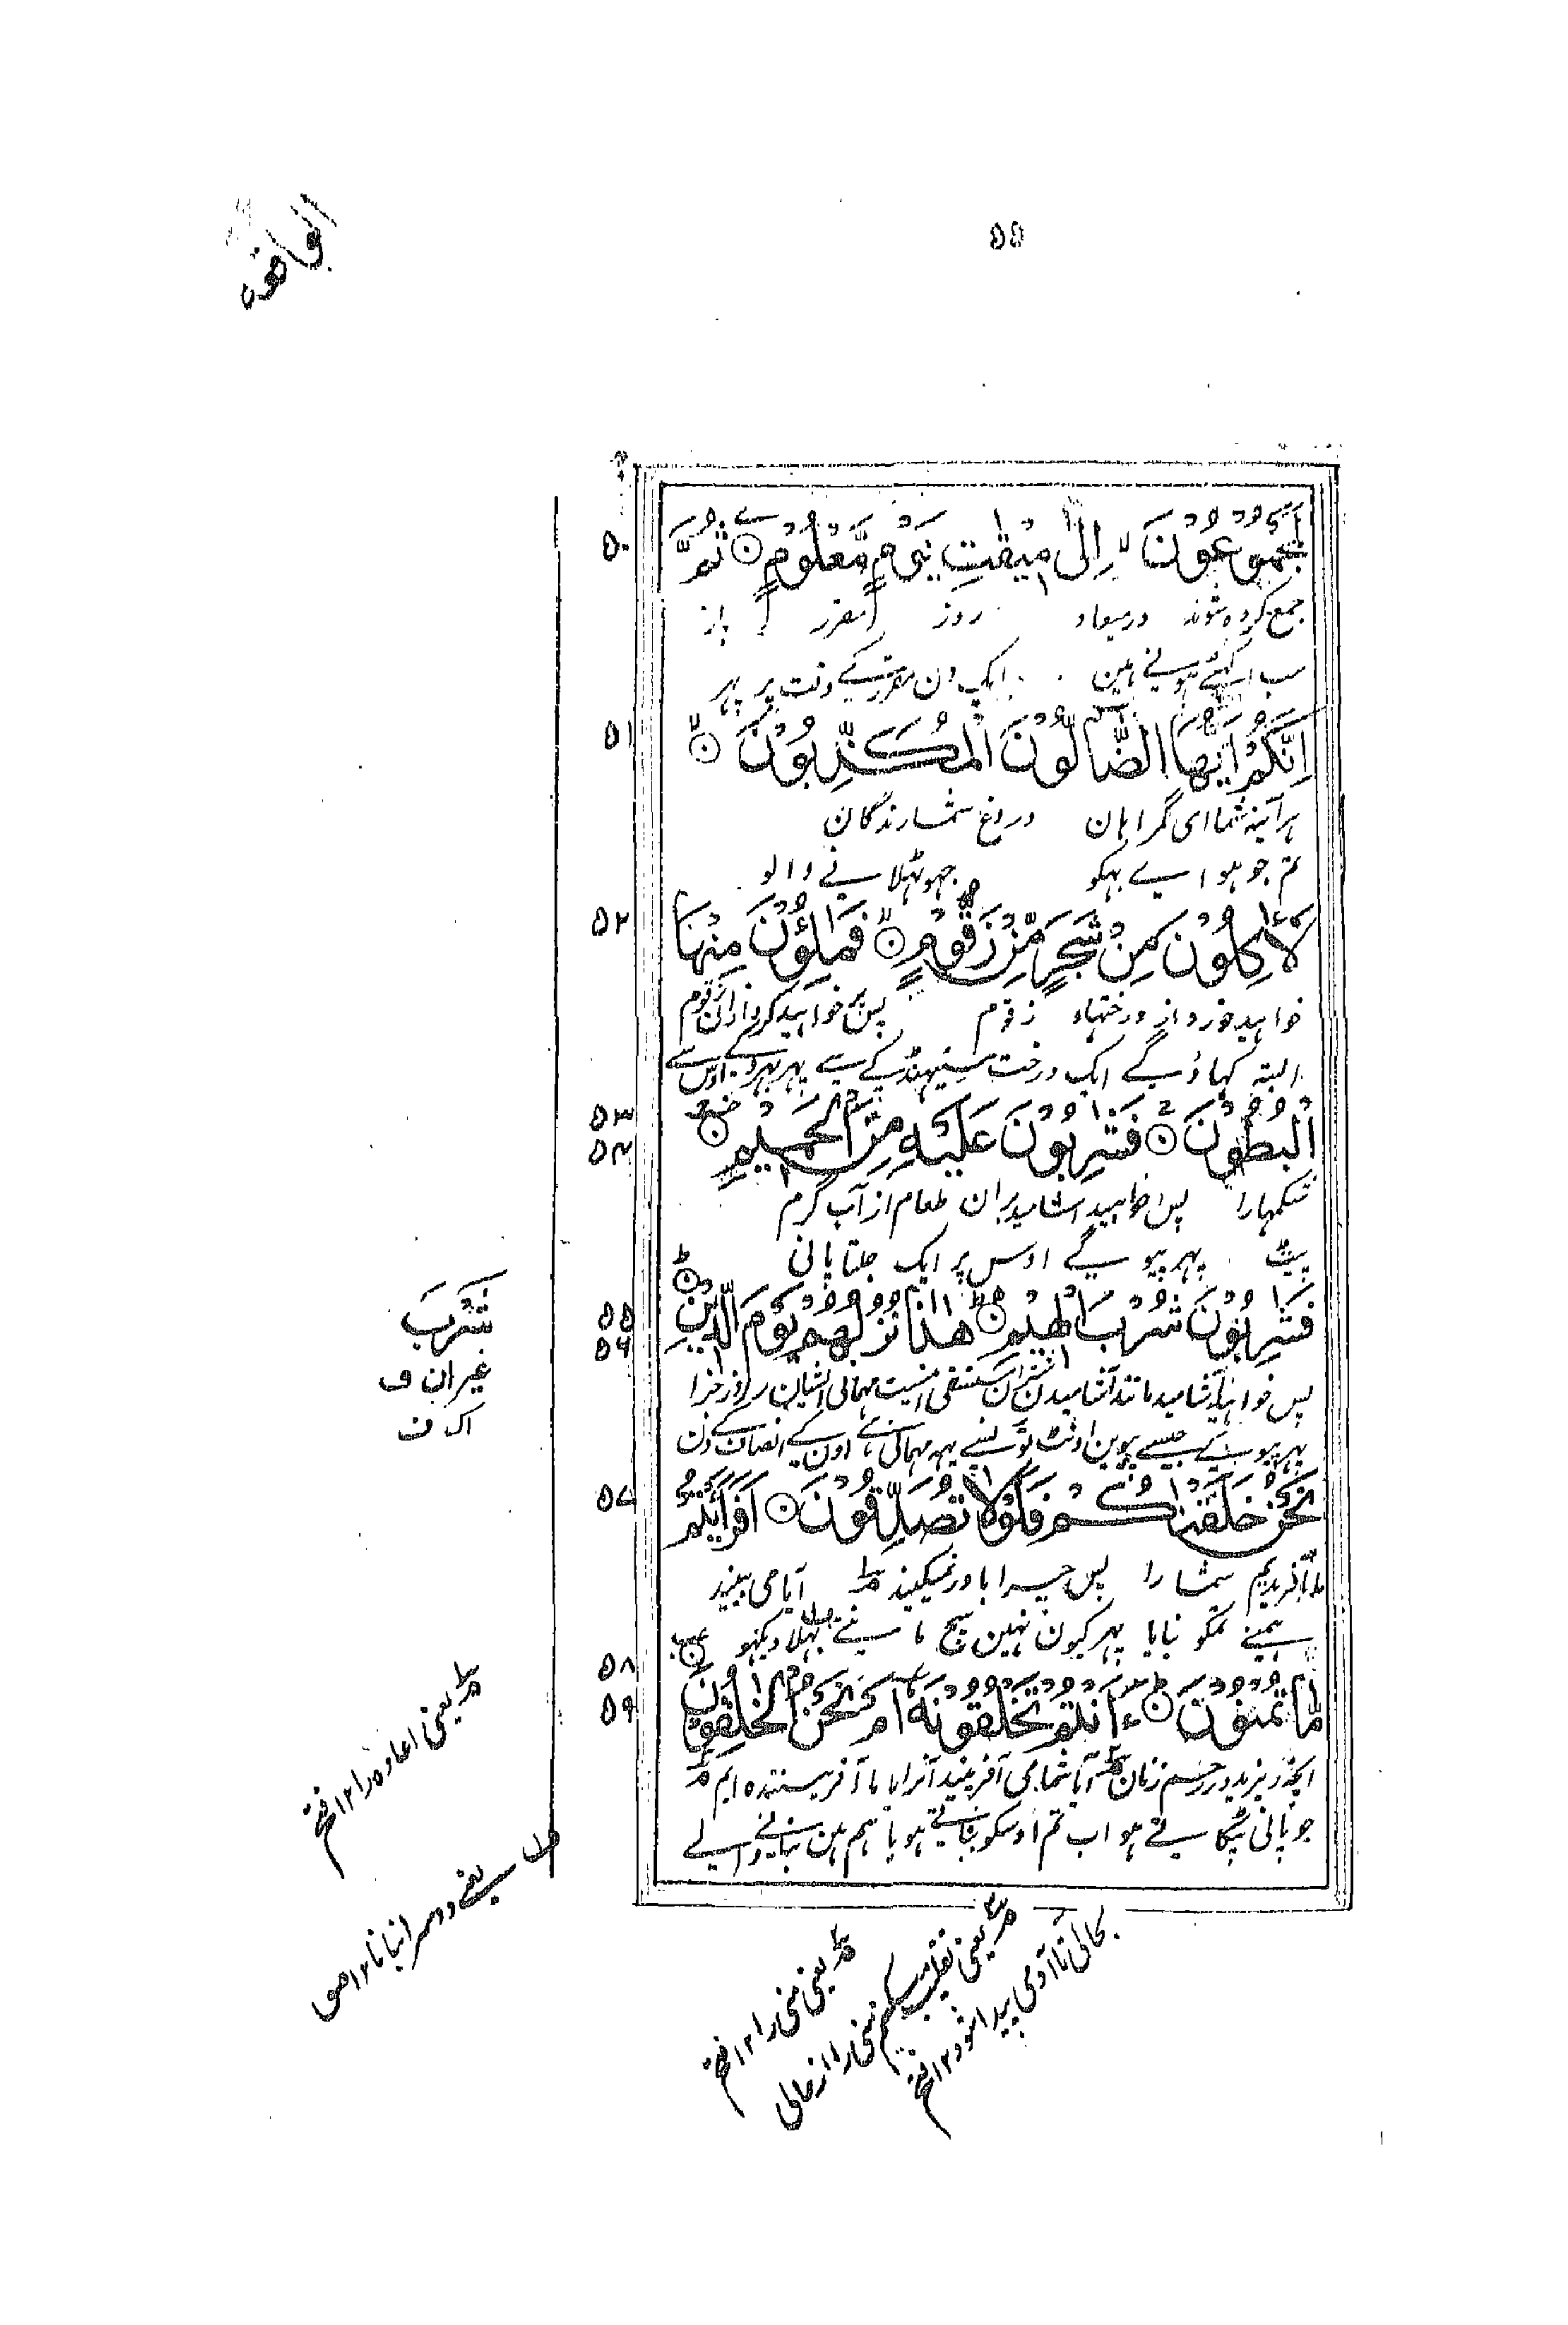 الواقعه
۵۵
لَمَجْمُوْعُوْنَ ۙ اِلٰى مِيْقٰتِ يَوْمٍ مَّعْلُوْمٍ ۞ ثُمَّ ۵۰
جمع کرده شوند در میعاد روز مقرر باز
سب اکٹھے ہونے ہین ایک دن مقرر کے وقت پر پہر
اِنَّكُمْ اَيُّهَا الضَّآلُّوْنَ الْمُكَذِّبُوْنَ ۞ ۵۱
ہر آئینہ شما ای گمراہان دروغ شمارندگان
تم جو ہو اے بہکو جہوٹہلانے والو
لَاٰكِلُوْنَ مِنْ شَجَرٍ مِّنْ زَقُّوْمٍ ۞ فَمَالِئُوْنَ مِنْهَا ۵۲
خواہید خورد از درختہاء زقوم پس پر خواہید کرد ازان زقوم
البتہ کہاؤ گے ایک درخت سینہڈ کے سے پہر بہرو گے اوس سے
الْبُطُوْنَ ۞ فَشٰرِبُوْنَ عَلَيْهِ مِنَ الْحَمِيْمِ ۞ ۵۳ ۵۴
شکمہارا پس خواہید آشامید بران طعام از آب گرم
پیٹ پہر پیو گے اوس پر ایک جلتا پانی
فَشٰرِبُوْنَ شُرْبَ الْهِيْمِ ۞ هٰذَا نُزُلُهُمْ يَوْمَ الدِّيْنِ ۞ ۵۵ ۵۶
پس خواہید آشامید مانند آشامیدن شتران مستسقی اینست مہمانی ایشان روز جزا
پہر پیو گے جیسے پیوین اونٹ تونسے یہہ مہمانی ہے اون کے انصاف کے دن
نَحْنُ خَلَقْنٰكُمْ فَلَوْلَا تُصَدِّقُوْنَ ۞ اَفَرَءَيْتُمْ ۵۷
ما آفریدیم شما را پس چرا باور نمیکنید آیا می بینید
ہمنے تمکو بنایا پہر کیون نہین سچ مانتے بہلا دیکہو
مَّا تُمْنُوْنَ ۞ ءَاَنْتُمْ تَخْلُقُوْنَهٗٓ اَمْ نَحْنُ الْخٰلِقُوْنَ ۞ ۵۸ ۵۹
آنچہ ریزید در رحم زنان آیا شما می آفرینید آنرا یا ما آفرینندہ ایم
جو پانی ٹپکاتے ہو اب تم اوسکو بناتے ہو یا ہم ہین بنانیوالے
شَرْبَ
غیران ف
اک ف
یعنی اعادہ را ۱۲ فتح
ف۱ یعنے دوسرا بنانا ۱۲ مو
یعنی منی را ۱۲ فتح
یعنی تقلیب میکنیم منی را از حالی
بحالی تا آدمی پیدا شود ۱۲ فتح